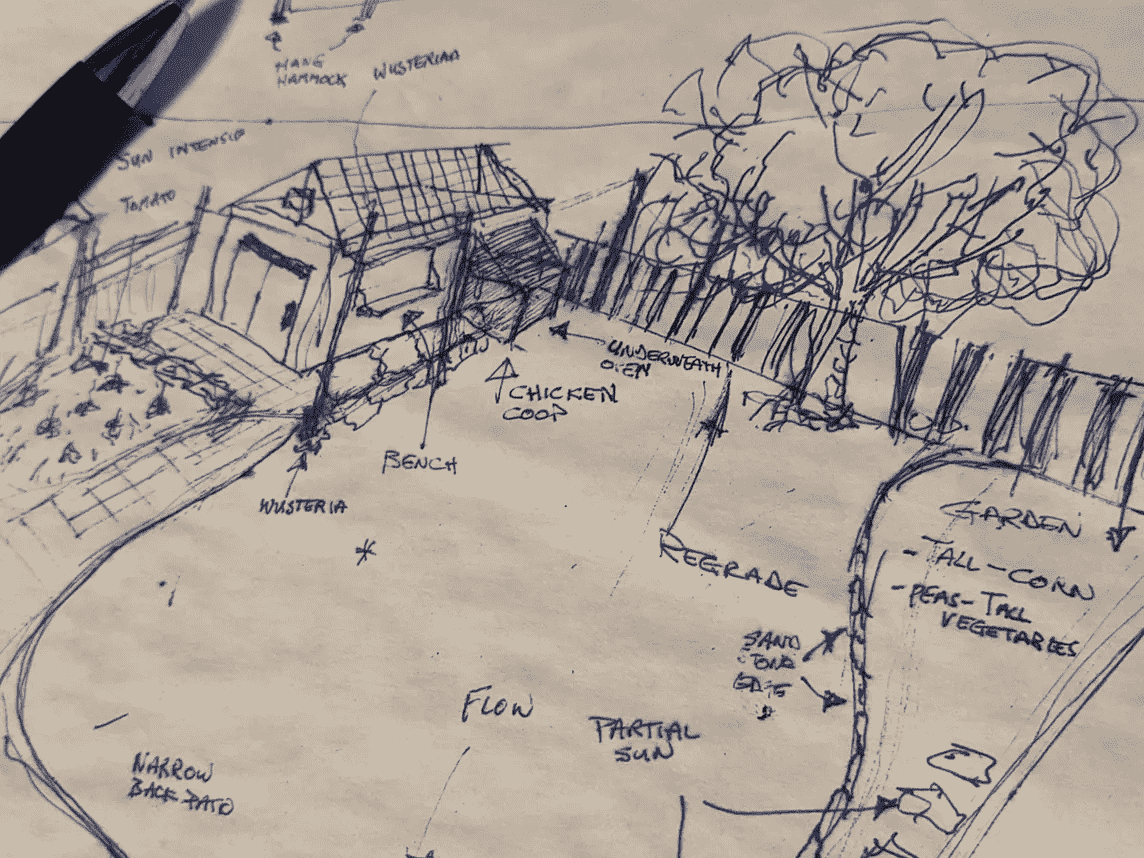 HANG
HAMMOCK
WUSTERIAA
SUN INTENSIF
TOMATO
UNDERWEATH
OPEN
CHICKEN
COOP
BENCH
WUSTERIA
GARDEN
-TALL-CORN
-PEAS-TALL
VEGETABLES
REGRADE
SAND
EDGE
FLOW
PARTIAL
SUN
NARROW
BACK PATO